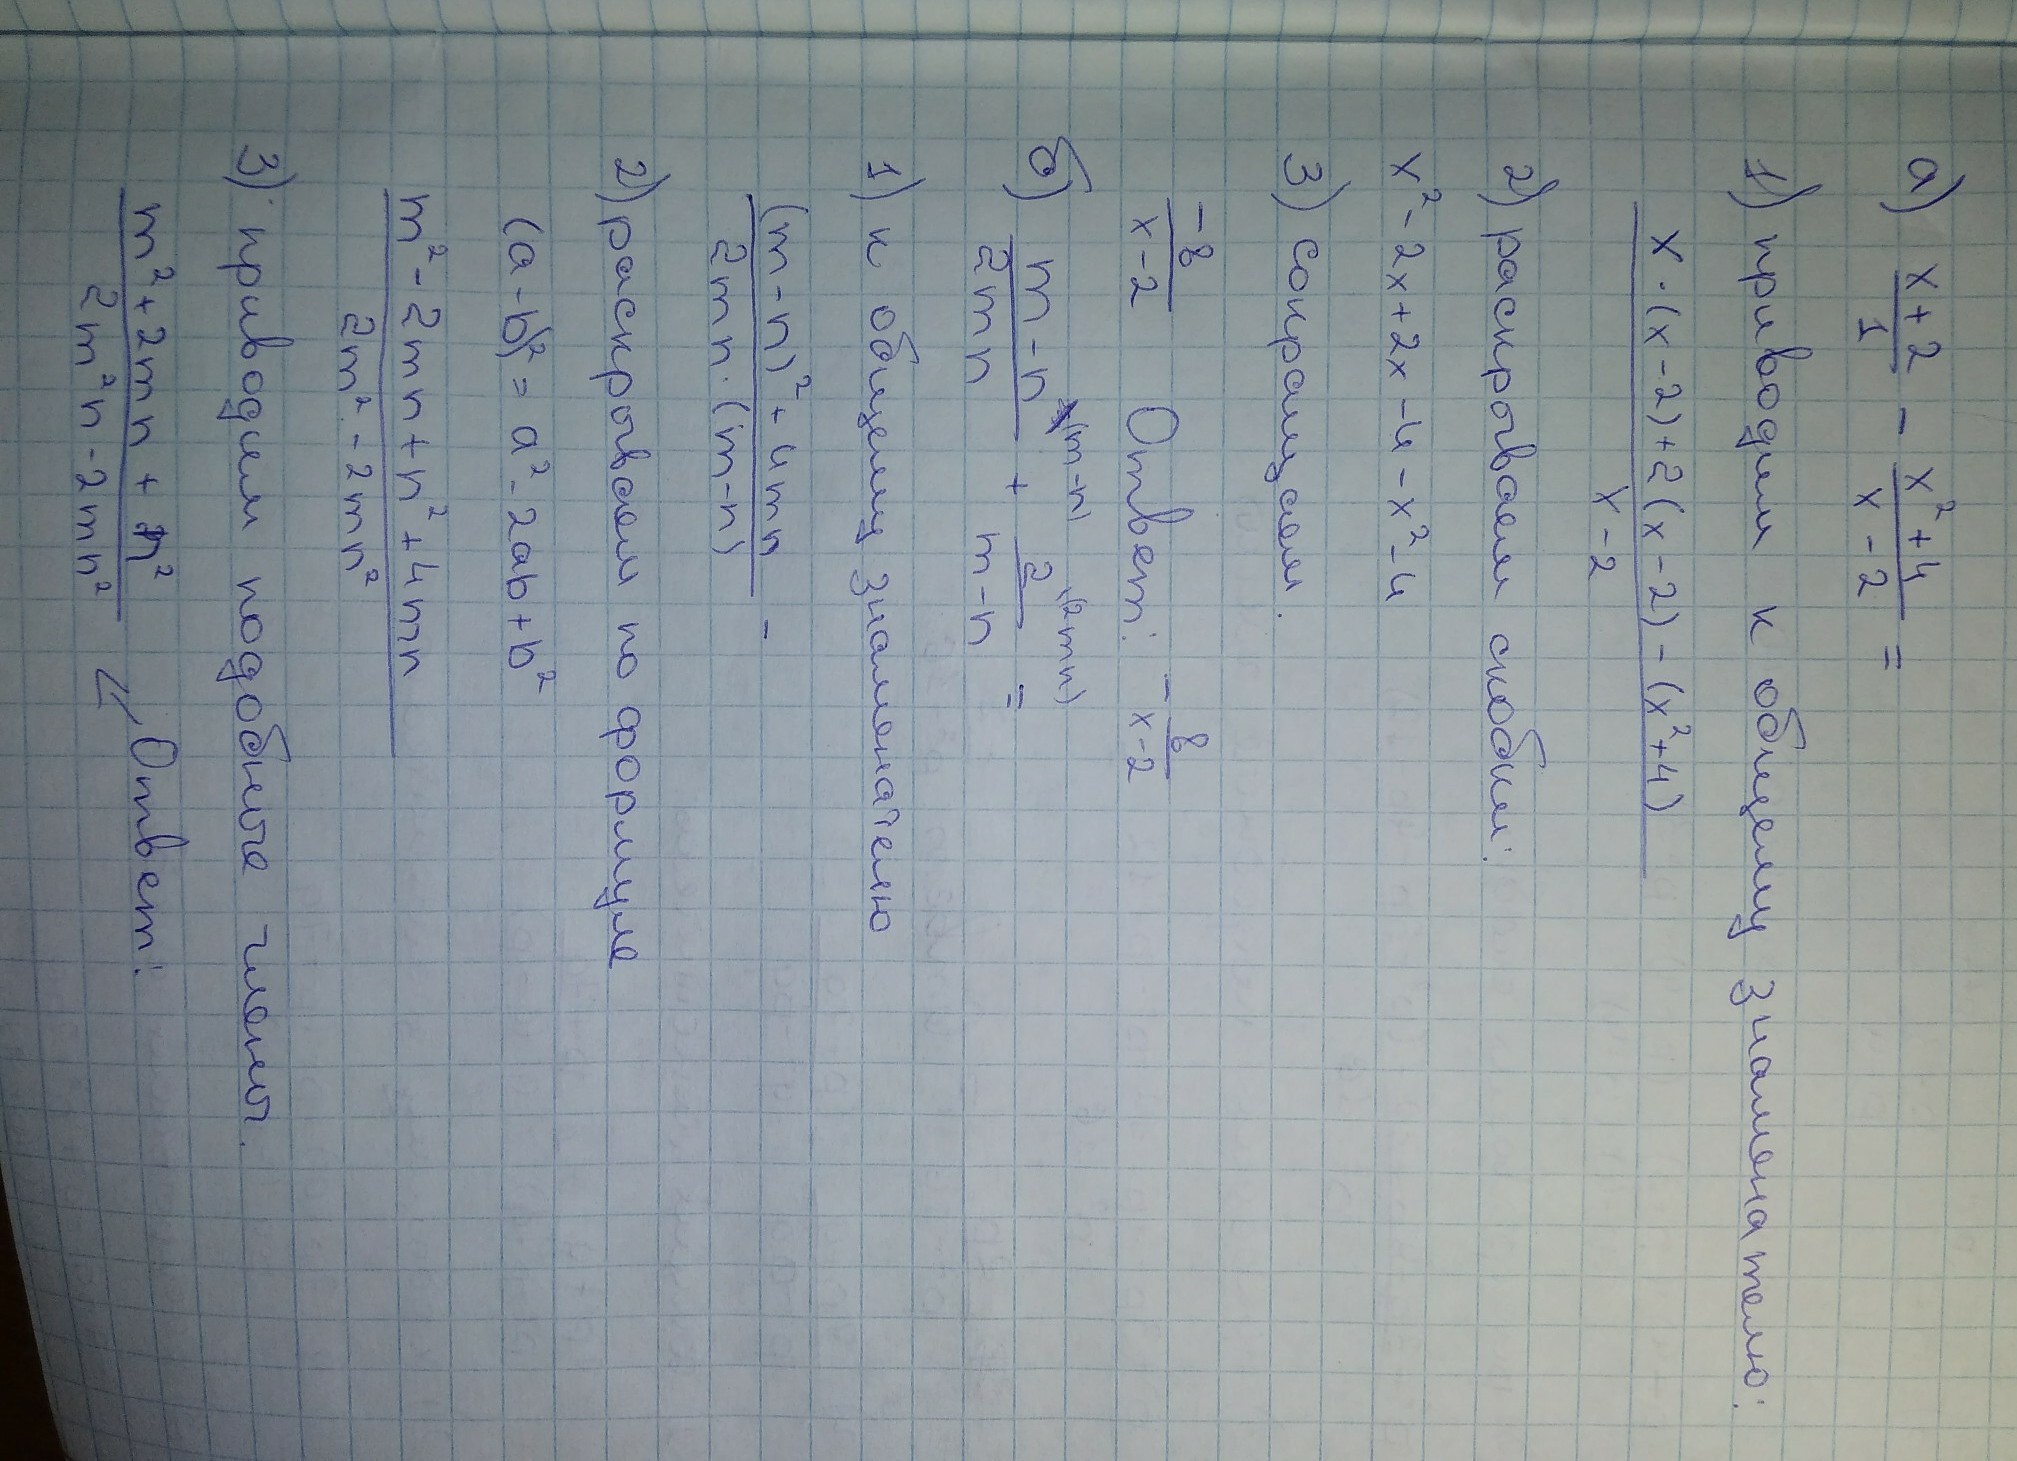 а) x+2/1 − x²+4/x−2 =
1) приводим к общему знаменателю:
x·(x−2)+2(x−2)−(x²+4)/x−2
2) раскрываем скобки:
x²−2x+2x−4−x²−4
3) сокращаем.
−8/x−2 Ответ: −8/x−2
б) m−n/2mn (m−n) + 2/m−n (2mn) =
1) к общему знаменателю
(m−n)²+4mn/2mn·(m−n) −
2) раскрываем по формуле
(a−b)²=a²−2ab+b²
m²−2mn+n²+4mn/2m²−2mn²
3) приводим подобные члены.
m²+2mn+n²/2m²n−2mn² Ответ: